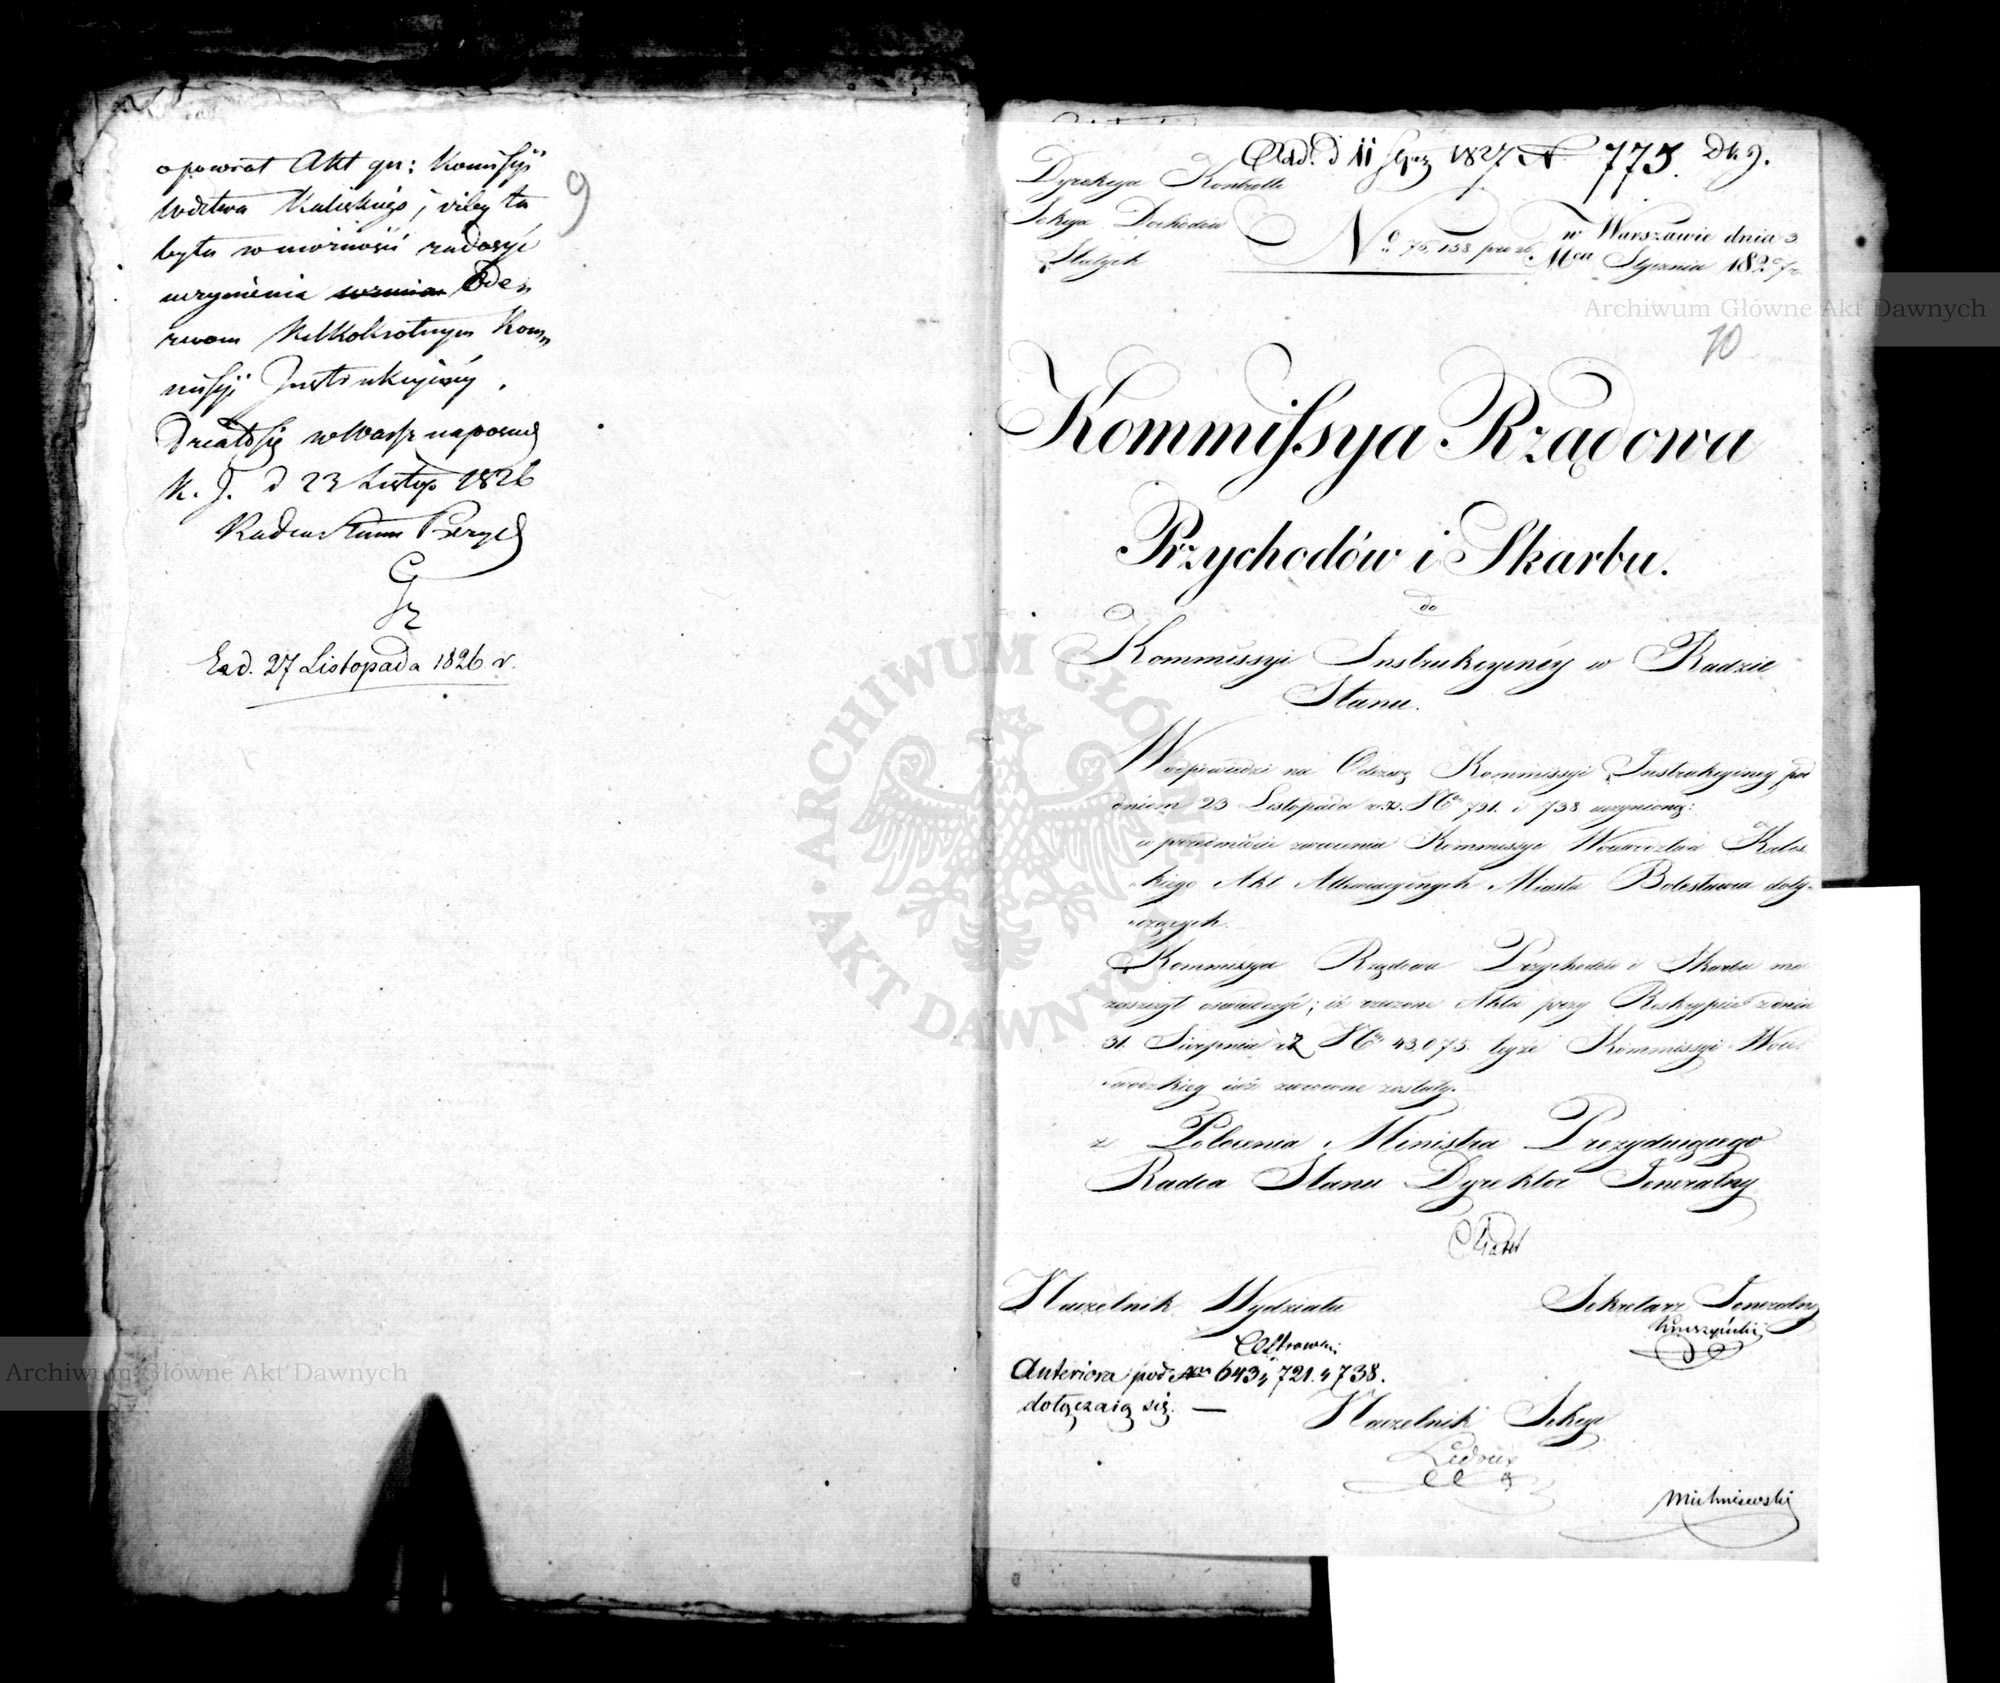 o powrót Akt gn: Komissyi
Wdztwa Kaliskiego, iżby ta
była w możności zadosyć
uczynienia Ode„
zwom kilkokrotnym Kom„
missyi Instrukcyinéy.
Działo się w Warsz na posied
K. J. d 23 Listop 1826
Radca Stanu
Exd. 27 Listopada 1826 r.
9
d 11 1827 N 775. Dk 9.
Dyrekcya Kontrolli
Sekcya Dochodów
Stałych
No 75,158
w Warszawie dnia 3
Mca Stycznia 1827 r.
10
Kommissya Rządowa
Przychodów i Skarbu.
do
Kommissyi Instrukcyinéy w Radzie
Stanu.
W odpowiedzi na Odezwę Kommissyi Instrukcyiney pod
dniem 23 Listopada r.z. Nr 721. i 738 uczynioną:
w przedmiocie zwrócenia Kommissyi Wojewodztwa Kalis„
kiego Akt Attwiacyjnych Miasta Bolesławca doty„
czących.
Kommissya Rządowa Przychodów i Skarbu ma
zaszczyt oświadczyć, iż rzeczone Akta przy Reskrypcie z dnia
31. Sierpnia r.z. Nr 43,075. teyże Kommissyi Woie„
wodzkiey iuż zwrócone zostały.
z Polecenia Ministra Prezyduiącego
Radca Stanu Dyrektor Jeneralny
Naczelnik Wydziału
Sekretarz Jeneralny
Kruszyński
Ostrowski
Anteriora pod Nrm 643, 721. i 738.
dołączaią się. —
Naczelnik Sekcyi
Ledoux
Michniewski
Archiwum Główne Akt Dawnych
Archiwum Główne Akt Dawnych
ARCHIWUM GŁÓWNE AKT DAWNYCH